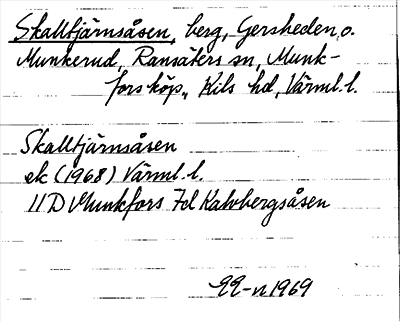 Skalltjärnsåsen, berg, Gersheden, o.
Munkerud, Ransäters sn, Munk-
fors köp., Kils hd, Värml. l.
Skalltjärnsåsen
ek (1968) Värml. l.
11D Munkfors 7d Kalvbergsåsen
1969